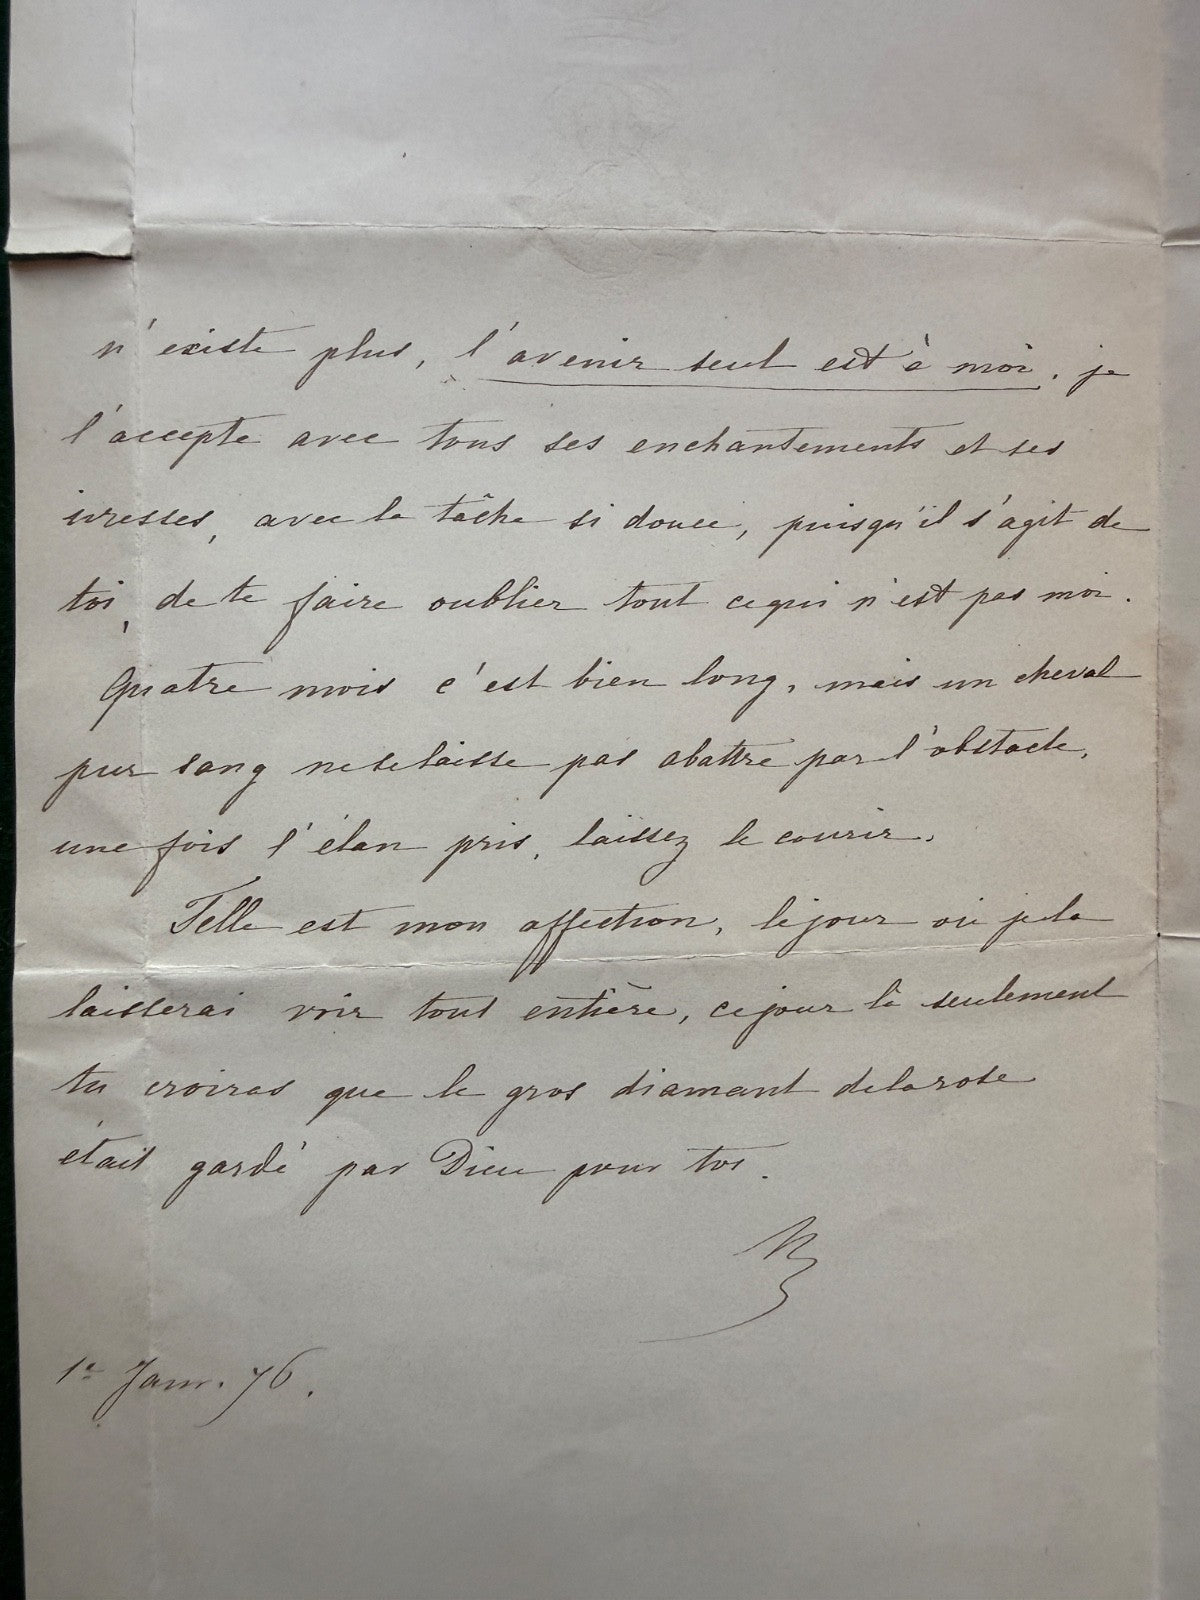 n'existe plus, l'avenir seul est à moi. je
l'accepte avec tous ses enchantements et ses
ivresses, avec la tâche si douce, puisqu'il s'agit de
toi, de te faire oublier tout ce qui n'est pas moi.
Quatre mois c'est bien long, mais un cheval
pur sang ne se laisse pas abattre par l'obstacle,
une fois l'élan pris, laissez le courir.
Telle est mon affection, le jour où je la
laisserai voir tout entière, ce jour là seulement
tu croiras que le gros diamant de la rose
était gardé par Dieu pour toi.
1er Janv. 76.